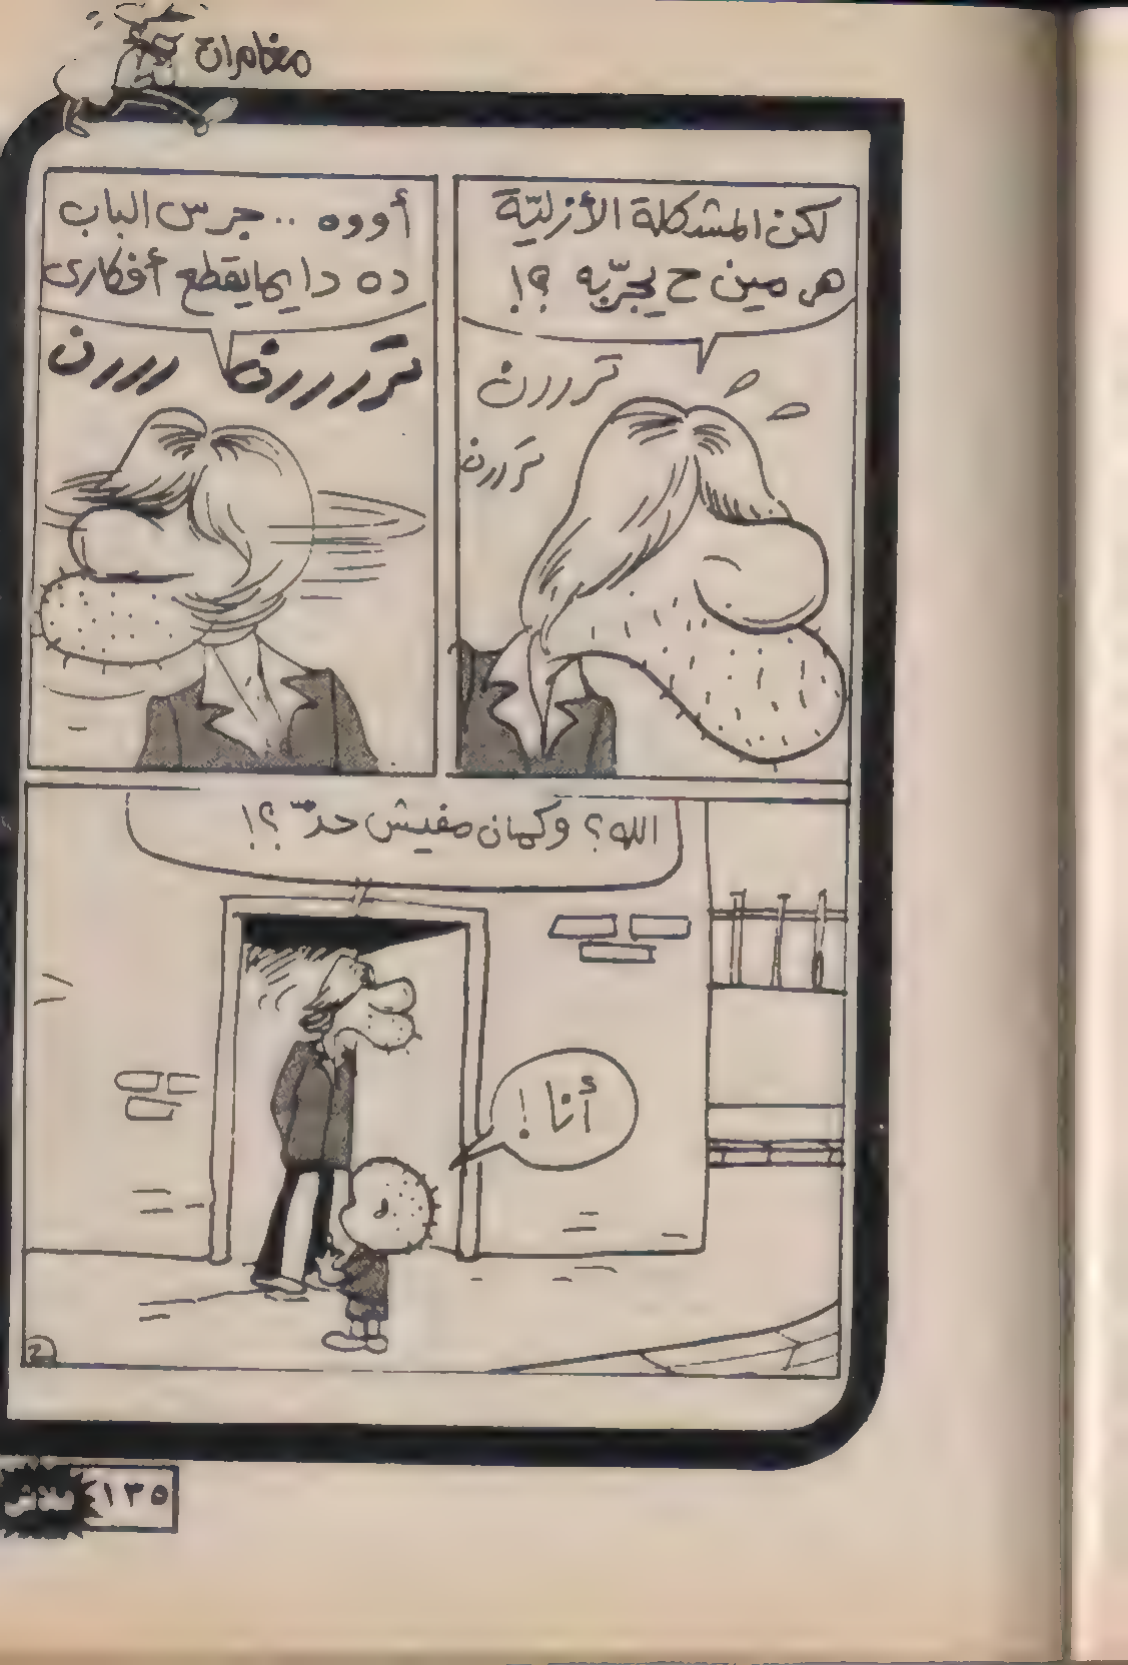 مغامرات
لكن المشكلة الأزليّة
هى مين ح يجرّبه ؟!
ترررن
تررن
أووه .. جرس الباب
ده دايما يقطع أفكارى
تررررن رررن
الله؟ وكمان مفيش حدّ ؟!
أنا !
2
١٣٥
فلاش